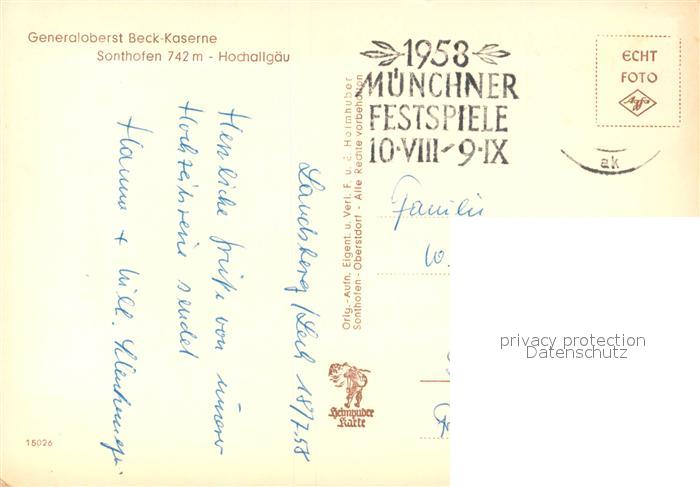 Generaloberst Beck-Kaserne
Sonthofen 742 m - Hochallgäu
1958
MÜNCHNER
FESTSPIELE
10·VIII-9·IX
ECHT
FOTO
Agfa
ak
Orig.-Aufn. Eigent. u. Verl. F. u. E. Heimhuber
Sonthofen-Oberstdorf - Alle Rechte vorbehalten
Landsberg/Lech 18/7.58
Herzliche Grüße von unserer
Hochzeitsreise sendet
Hanna + Will.
Familie
W.
Heimhuber
Karte
15026
privacy protection
Datenschutz